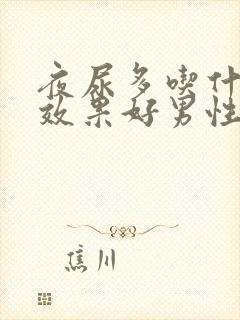 夜尿多喫什
效果好男性
焦川